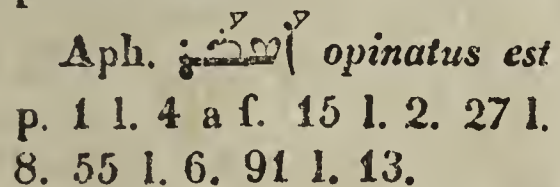 Aph. ܐܰܣܒܰܪ opinatus est
p. 1 l. 4 a f. 15 l. 2. 27 l.
8. 55 l. 6. 91 l. 13.